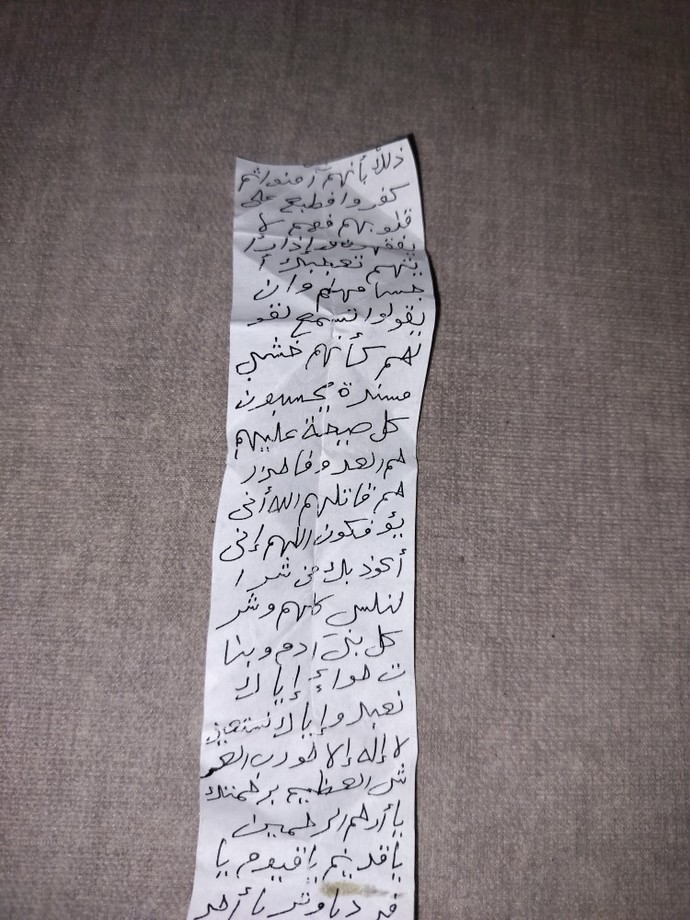 ذلك بأنهم آمنوا ثم
كفروا فطبع على
قلوبهم فهم لا
يفقهون وإذا رأ
يتهم تعجبك أ
جسامهم وان
يقولوا تسمع لقو
لهم كأنهم خشب
مسندة يحسبون
كل صيحة عليهم
هم العدو فاحذر
هم قاتلهم الله أنى
يؤفكون اللهم إنى
أعوذ بك من شر ا
لناس كلهم وشر
كل بنى ادم وبنا
ت حواء إياك
نعبد وإياك نستعين
لا إله إلا هو رب العر
ش العظيم برحمتك
يا أرحم الرحمين
يا قديم يا قيوم يا
فرد يا وتر يا أحد